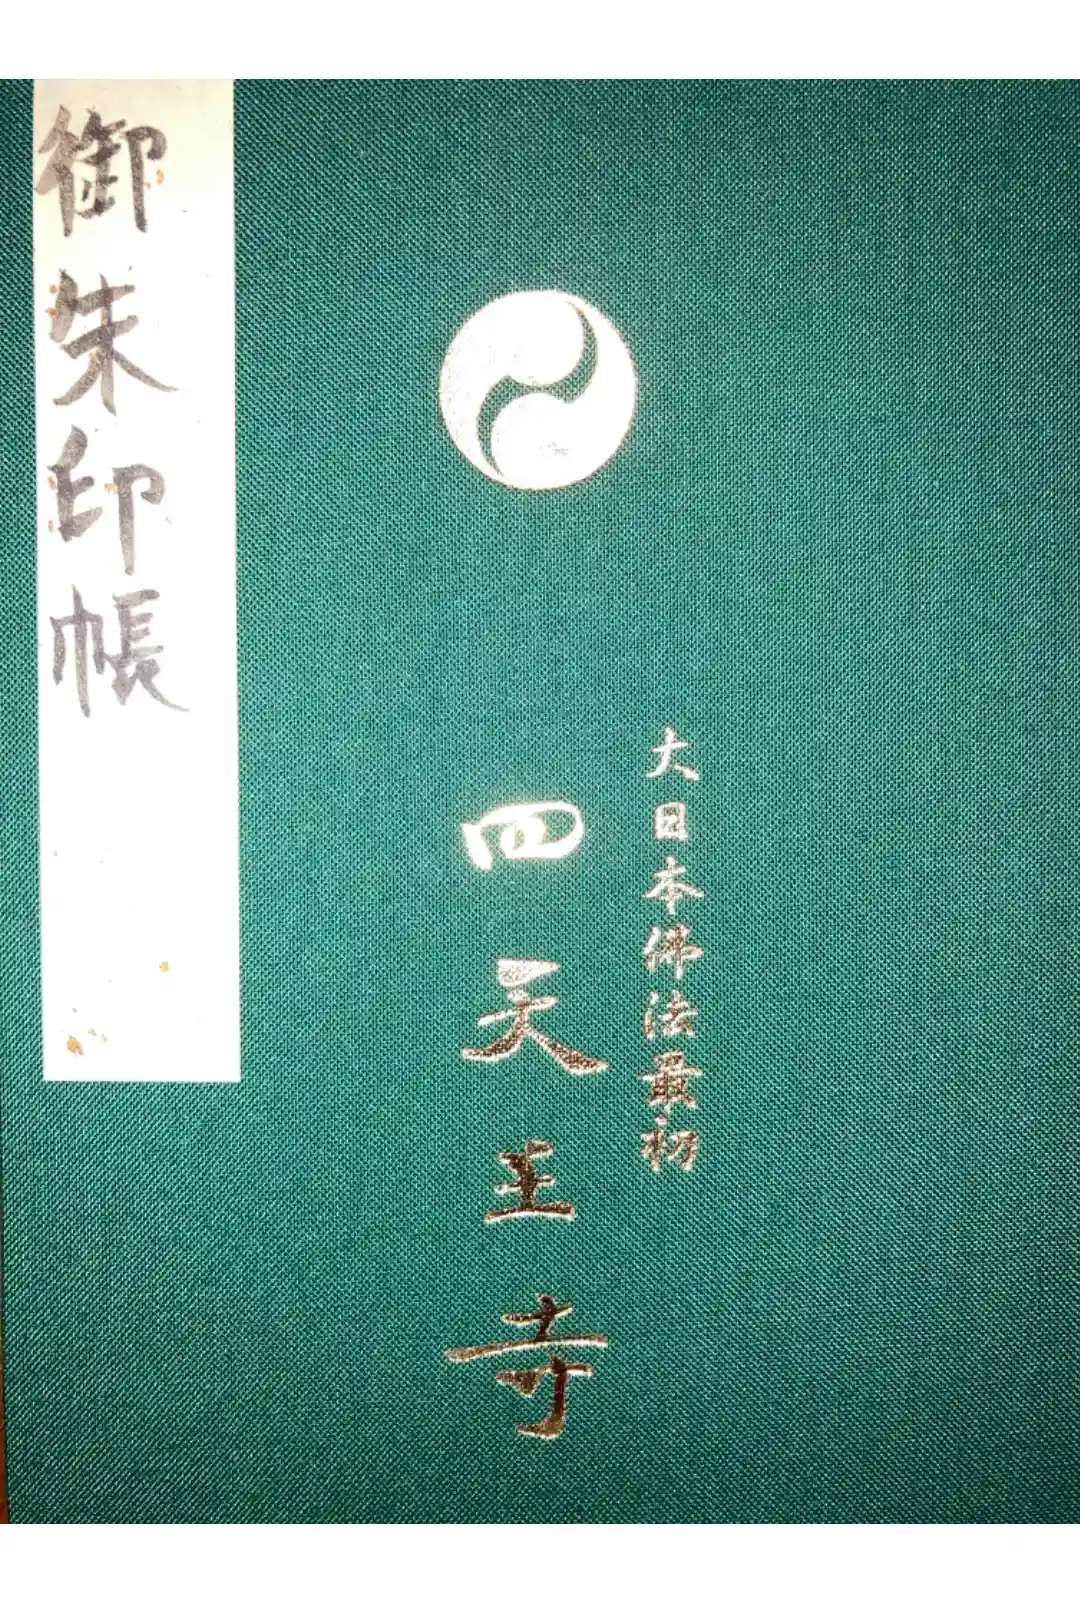 大日本佛法最初
四天王寺
御朱印帳